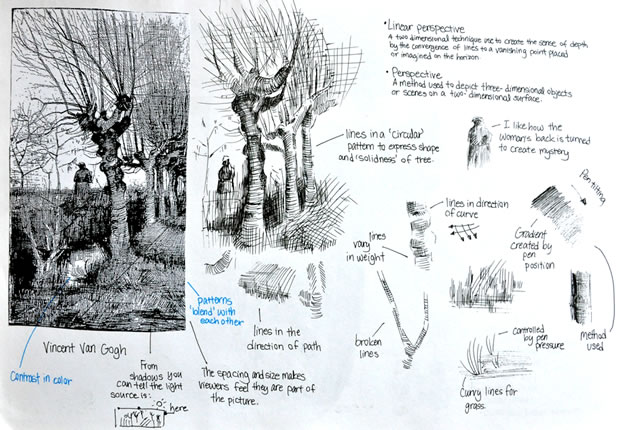 • Linear perspective
A two dimensional technique use to create the sense of depth
by the convergence of lines to a vanishing point placed
or imagined on the horizon.
• Perspective
A method used to depict three-dimensional objects
or scenes on a two-dimensional surface.
I like how the
woman's back is turned
to create mystery
lines in a 'circular'
pattern to express shape
and 'solidness' of tree.
lines in direction
of curve
Pen tilting
Gradient
created by
pen
position
lines
vary
in weight
method
used
patterns
'blend' with
each other
lines in the
direction of path
broken
lines
controlled
by pen
pressure
Curvy lines for
grass.
Vincent Van Gogh
Contrast in color
From
shadows you
can tell the light
source is:
here
The spacing and size makes
viewers feel they are part of
the picture.